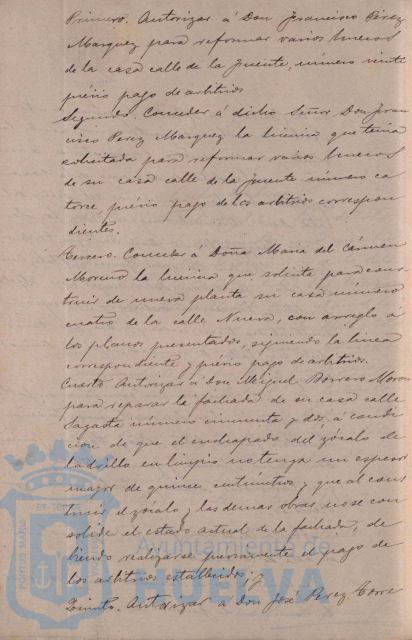 Primero. Autorizar á Don Francisco Pérez
Marquez para reformar varios huecos
de la casa calle de la Fuente, número veinte
prévio pago de arbitrios
Segundo. Conceder á dicho Señor, Don Fran
cisco Perez Marquez la licencia que tenia
solicitada para reformar varios huecos
de su casa calle de la Fuente número ca
torce, prévio pago de los arbitrios correspon
dientes.
Tercero. Conceder á Doña Maria del Cármen
Moreno la licencia que solicita para cons
truir de nueva planta su casa número
cuatro de la calle Nueva, con arreglo á
los planos presentados, siguiendo la linea
correspondiente y prévio pago de arbitrios.
Cuarto Autorizar á don Miguel Borrero Moron
para reparar la fachada de su casa calle
Sagasta número cincuenta y dos, á condi
cion de que el enchapado del zócalo de
ladrillo en limpio no tenga un espesor
mayor de quince centímetros, y que al cons
truir el zócalo y las demas obras no se con
solide el estado actual de la fachada, de
biendo realizarse previamente el pago de
los arbitrios establecidos; y
Quinto. Autorizar á Don José Perez Torre
PORTUS MARIS
ET TER
Ayuntamiento de
HUELVA